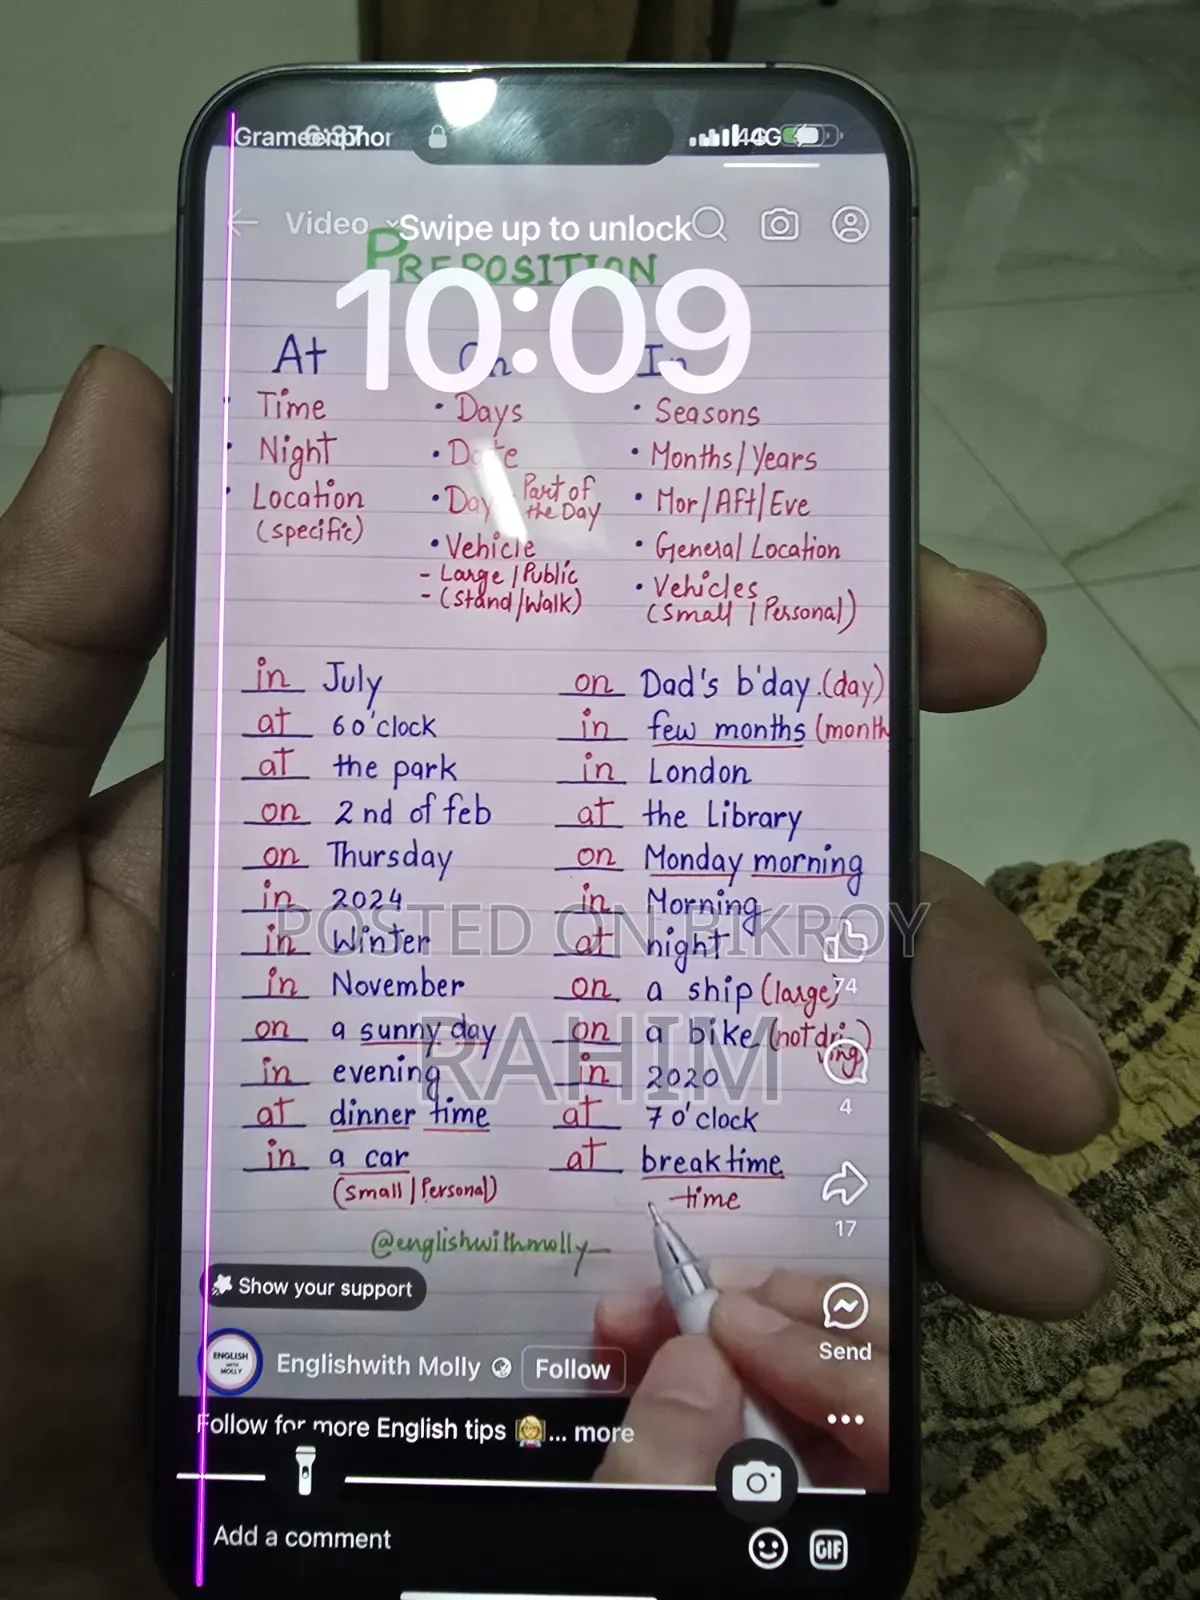 Grameenphon 6:37 4G
Video Swipe up to unlock
PREPOSITION
10:09
At On In
• Time • Days • Seasons
• Night • Date • Months/Years
• Location • Day Part of the Day • Mor/Aft/Eve
(specific) • Vehicle • General Location
- Large/Public • Vehicles
- (Stand/Walk) (Small/Personal)
in July on Dad's b'day (day)
at 6 o'clock in few months (month
at the park in London
on 2nd of feb at the Library
on Thursday on Monday morning
in 2024 in Morning
POSTED ON BIKROY
in Winter at night
74
in November on a ship (large)
RAHIM
on a sunny day on a bike (not driving)
in evening in 2020
4
at dinner time at 7 o'clock
in a car at breaktime
(Small/Personal) time
17
@englishwithmolly_
Show your support
Send
ENGLISH WITH MOLLY
Englishwith Molly Follow
Follow for more English tips ... more
Add a comment GIF